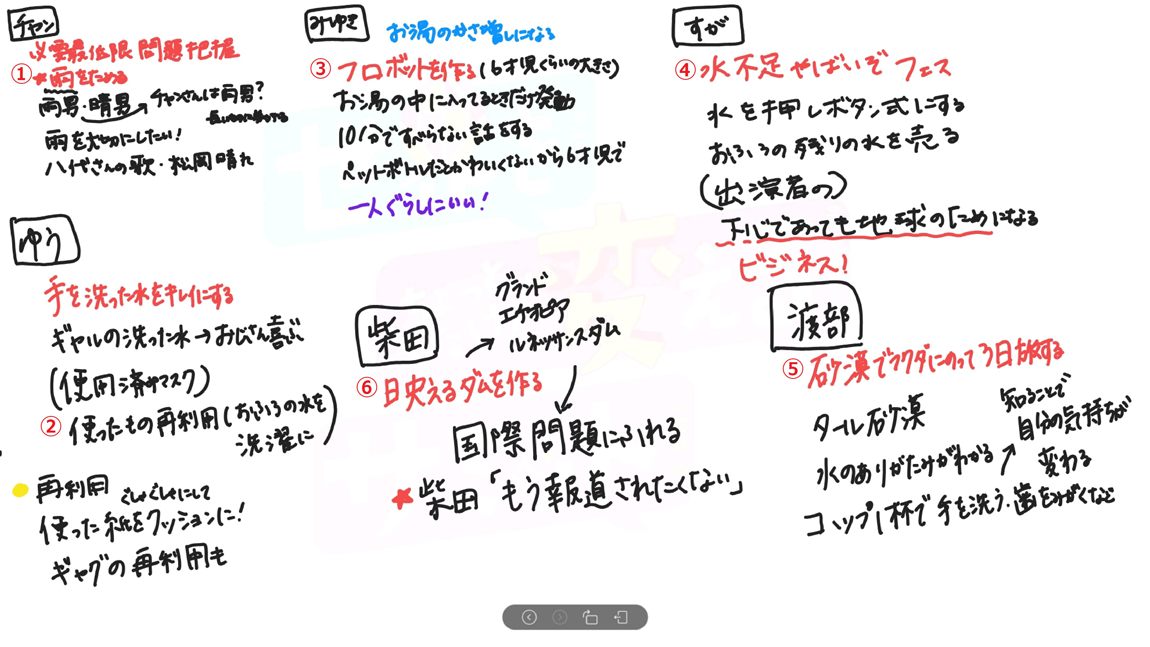 チャン
必要最低限 問題把握
① ★雨をためる
雨男・晴男 → チャンさんは雨男?
雨を大切にしたい!
八代さんの歌・松岡晴れ
みゆき
お湯のかさ増しになる
③ フロボットを作る(6才児くらいの大きさ)
お湯の中に入ってるときだけ発動
10分ですべらない話をする
ペットボトルだとかわいくないから6才児で
一人ぐらしにいい!
すが
④ 水不足やばいぞフェス
水を押しボタン式にする
おふろの残りの水を売る
(出演者の)
下心であっても地球のためになる
ビジネス!
ゆう
手を洗った水をキレイにする
ギャルの洗った水→おじさん喜ぶ
(使用済みマスク)
② 使ったもの再利用(おふろの水を
洗濯に)
再利用
ぐしゃぐしゃにして
使った紙をクッションに!
ギャグの再利用も
柴田
グランド
エチオピア
ルネッサンスダム
⑥ 映えるダムを作る
国際問題にふれる
★柴田「もう報道されたくない」
渡部
⑤ 砂漠でラクダにのって3日旅する
タール砂漠
水のありがたみがわかる
知ることで
自分の気持ちが
変わる
コップ1杯で手を洗う・歯をみがくなど